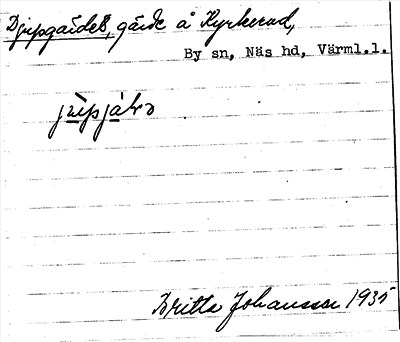 Djupgärdet, gärde å Kyrkerud,
By sn, Näs hd, Värml.l.
Britta Johansson 1935